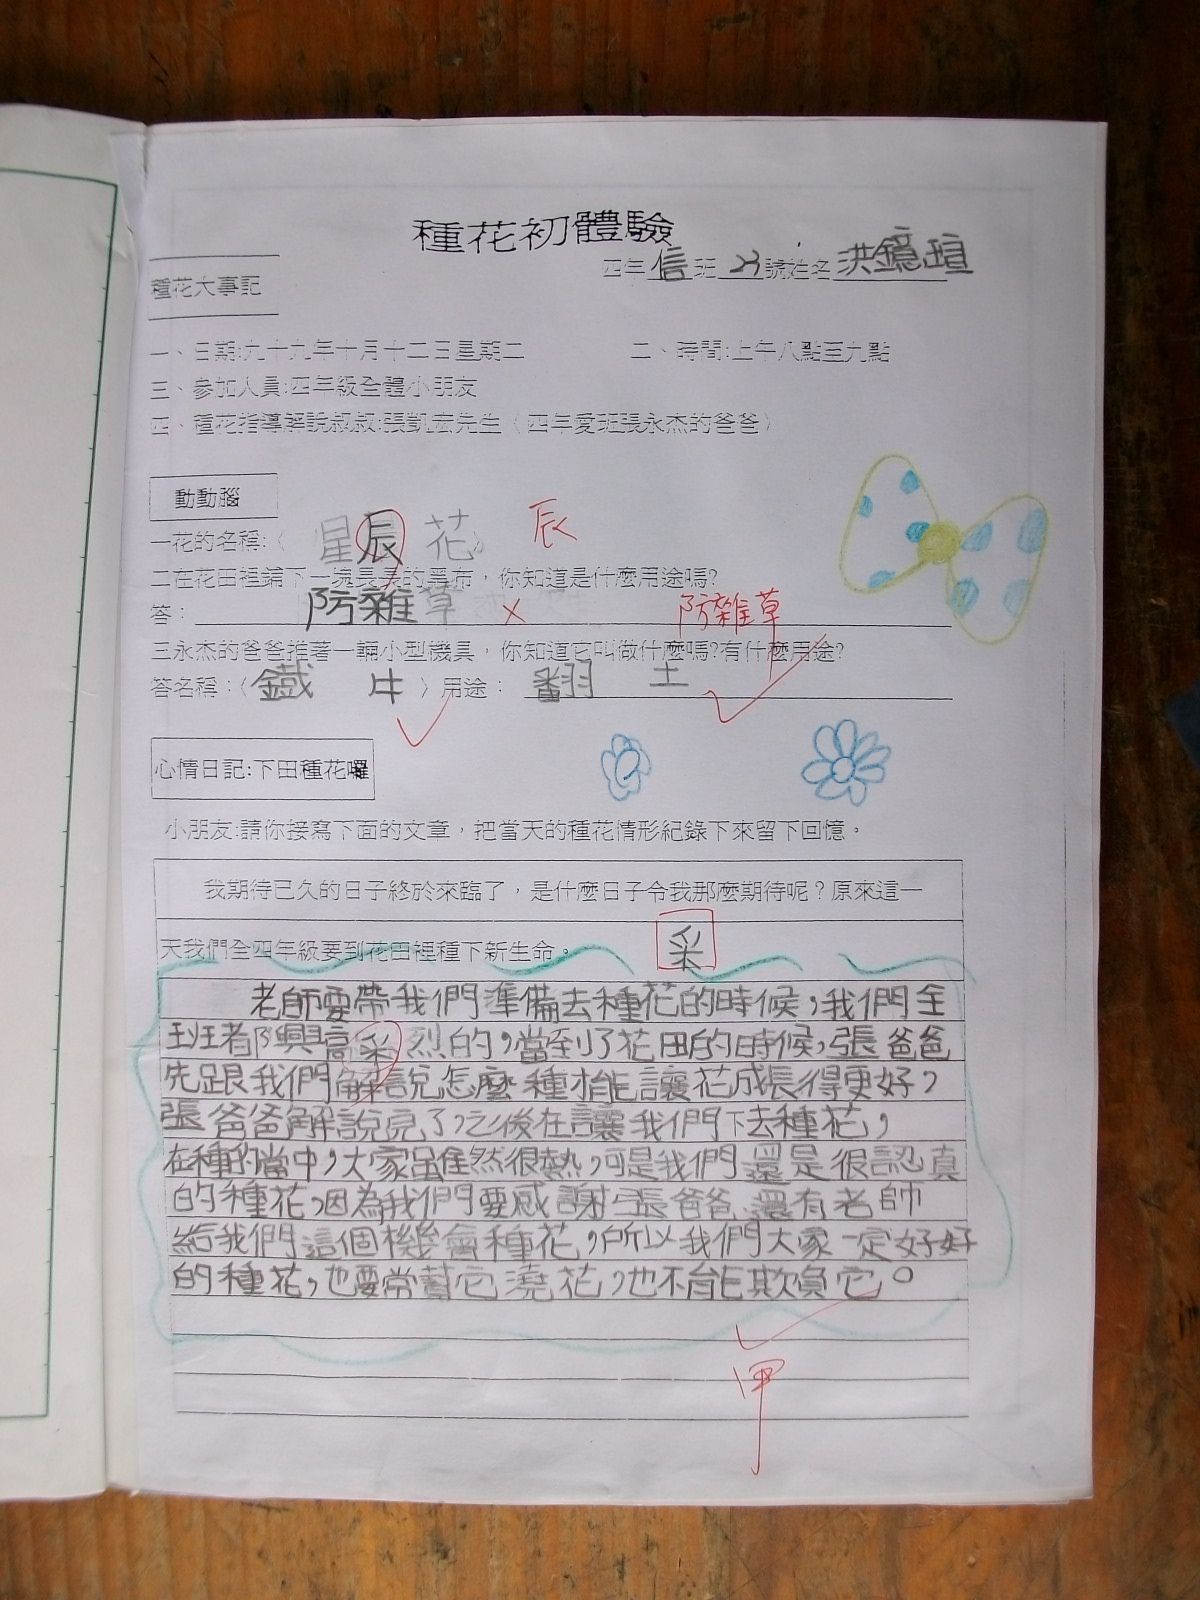 種花初體驗
四年信班 號姓名洪鐿瑄
種花大事記
一、日期:九十九年十月十二日星期二 二、時間:上午八點至九點
三、參加人員:四年級全體小朋友
四、種花指導解說叔叔:張凱宏先生（四年愛班張永杰的爸爸）
動動腦
一花的名稱:（星辰花） 辰
二在花田裡鋪下一塊長長的黑布，你知道是什麼用途嗎?
答：防雜草 × 防雜草
三永杰的爸爸推著一輛小型機具，你知道它叫做什麼嗎?有什麼用途?
答名稱：（鐵牛）用途：翻土
心情日記:下田種花囉
小朋友:請你接寫下面的文章，把當天的種花情形紀錄下來留下回憶。
我期待已久的日子終於來臨了，是什麼日子令我那麼期待呢？原來這一
天我們全四年級要到花田裡種下新生命。 采
老師要帶我們準備去種花的時候，我們全
班都興高采烈的，當到了花田的時候，張爸爸
先跟我們解說怎麼種才能讓花成長得更好，
張爸爸解說完了，之後在讓我們下去種花，
在種的當中，大家雖然很熱，可是我們還是很認真
的種花，因為我們要感謝張爸爸還有老師
給我們這個機會種花，所以我們大家一定好好
的種花，也要常幫它澆花，也不能欺負它。
甲